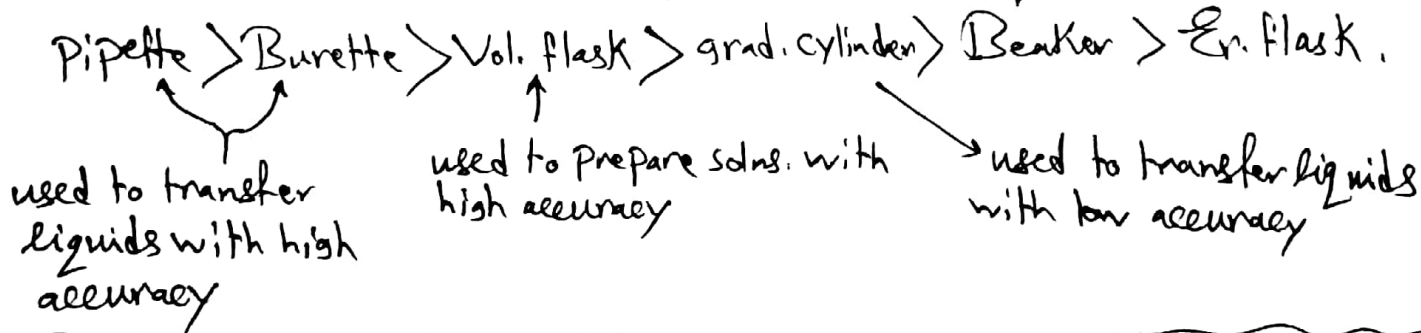 Pipette > Burette > Vol. flask > grad. cylinder > Beaker > Er. flask.
used to transfer
liquids with high
accuracy
used to prepare solns. with
high accuracy
used to transfer liquids
with low accuracy